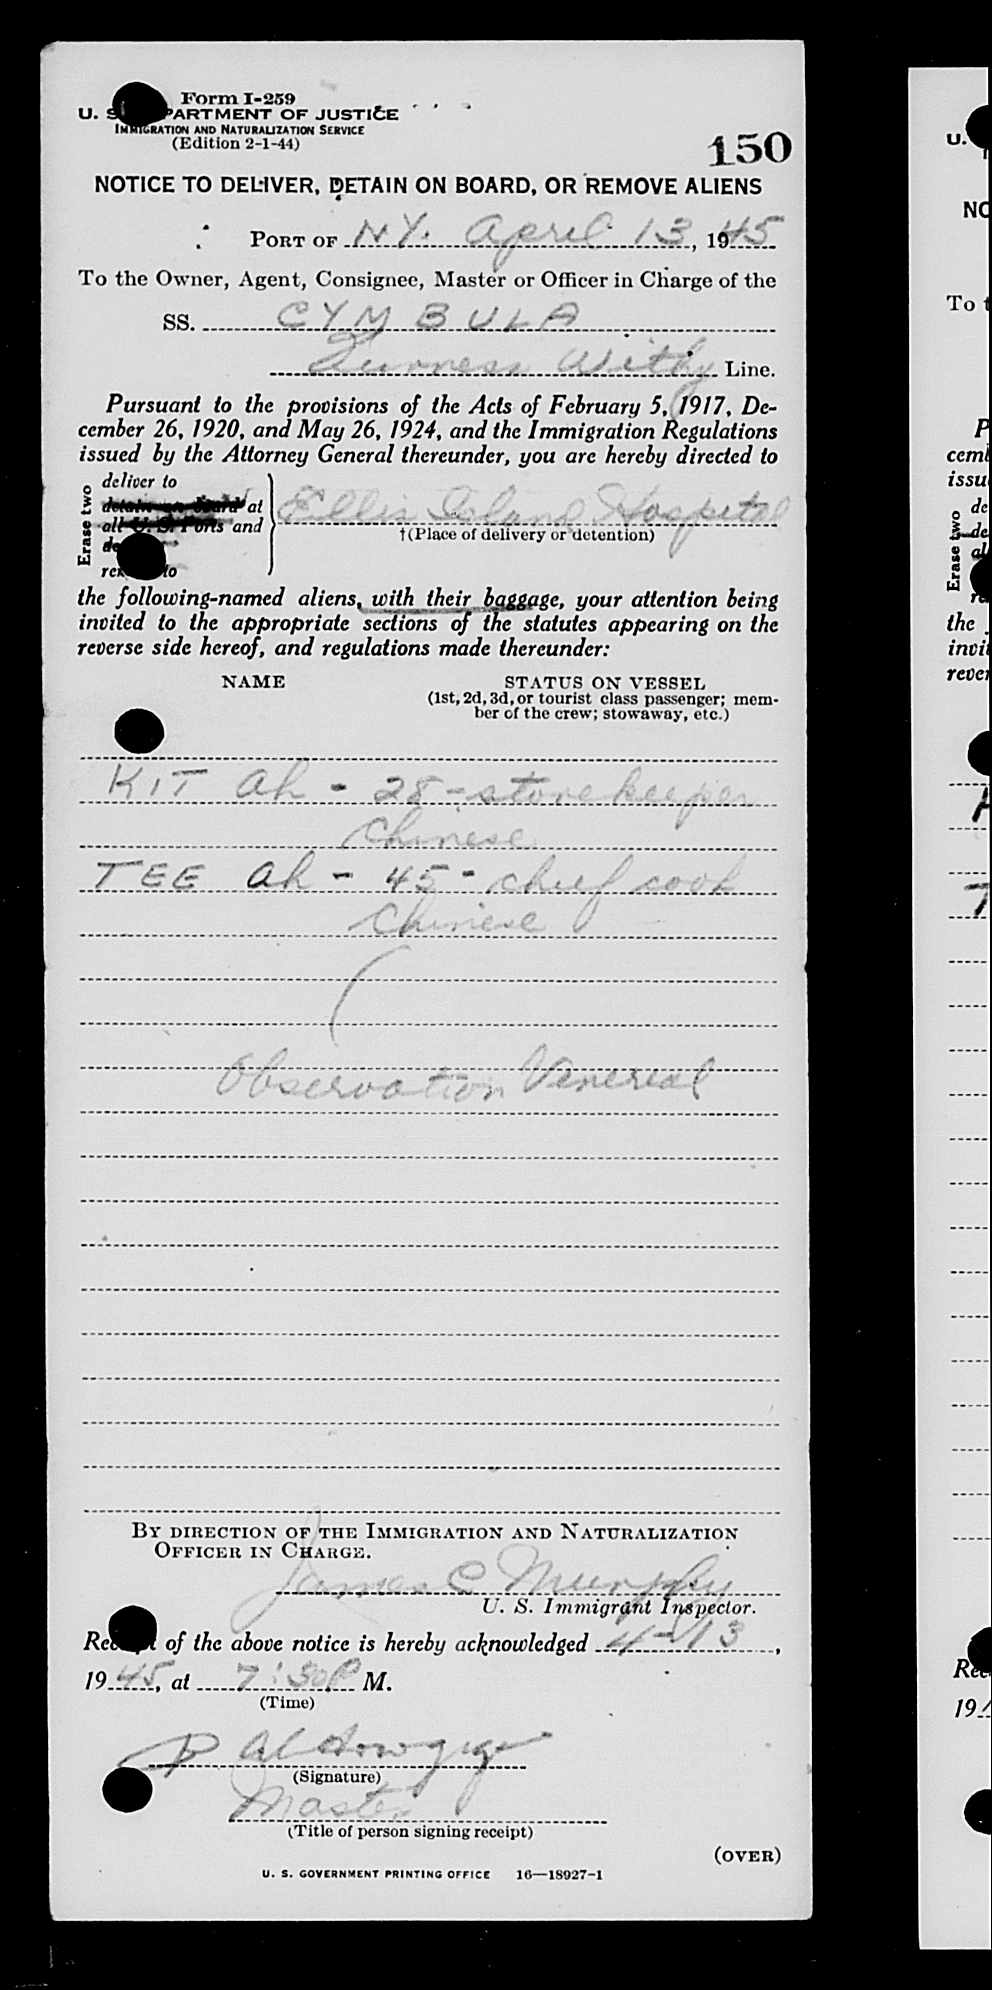 Form I-259
U. S. DEPARTMENT OF JUSTICE
IMMIGRATION AND NATURALIZATION SERVICE
(Edition 2-1-44)
150
NOTICE TO DELIVER, DETAIN ON BOARD, OR REMOVE ALIENS
PORT OF N.Y. April 13, 1945
To the Owner, Agent, Consignee, Master or Officer in Charge of the
SS. CYMBULA
Furness Withy Line.
Pursuant to the provisions of the Acts of February 5, 1917, De-
cember 26, 1920, and May 26, 1924, and the Immigration Regulations
issued by the Attorney General thereunder, you are hereby directed to
Erase two
deliver to
detain on board at
all U. S. Ports and
remove to
Ellis Island Hospital
†(Place of delivery or detention)
the following-named aliens, with their baggage, your attention being
invited to the appropriate sections of the statutes appearing on the
reverse side hereof, and regulations made thereunder:
NAME STATUS ON VESSEL
(1st, 2d, 3d, or tourist class passenger; mem-
ber of the crew; stowaway, etc.)
KIT Ah - 28 - storekeeper
Chinese
TEE Ah - 45 - chief cook
Chinese
Observation Venereal
BY DIRECTION OF THE IMMIGRATION AND NATURALIZATION
OFFICER IN CHARGE.
James C Murphy
U. S. Immigrant Inspector.
Receipt of the above notice is hereby acknowledged 4-13,
1945, at 7:30 P M.
(Time)
(Signature)
Master
(Title of person signing receipt)
(OVER)
U. S. GOVERNMENT PRINTING OFFICE 16—18927-1